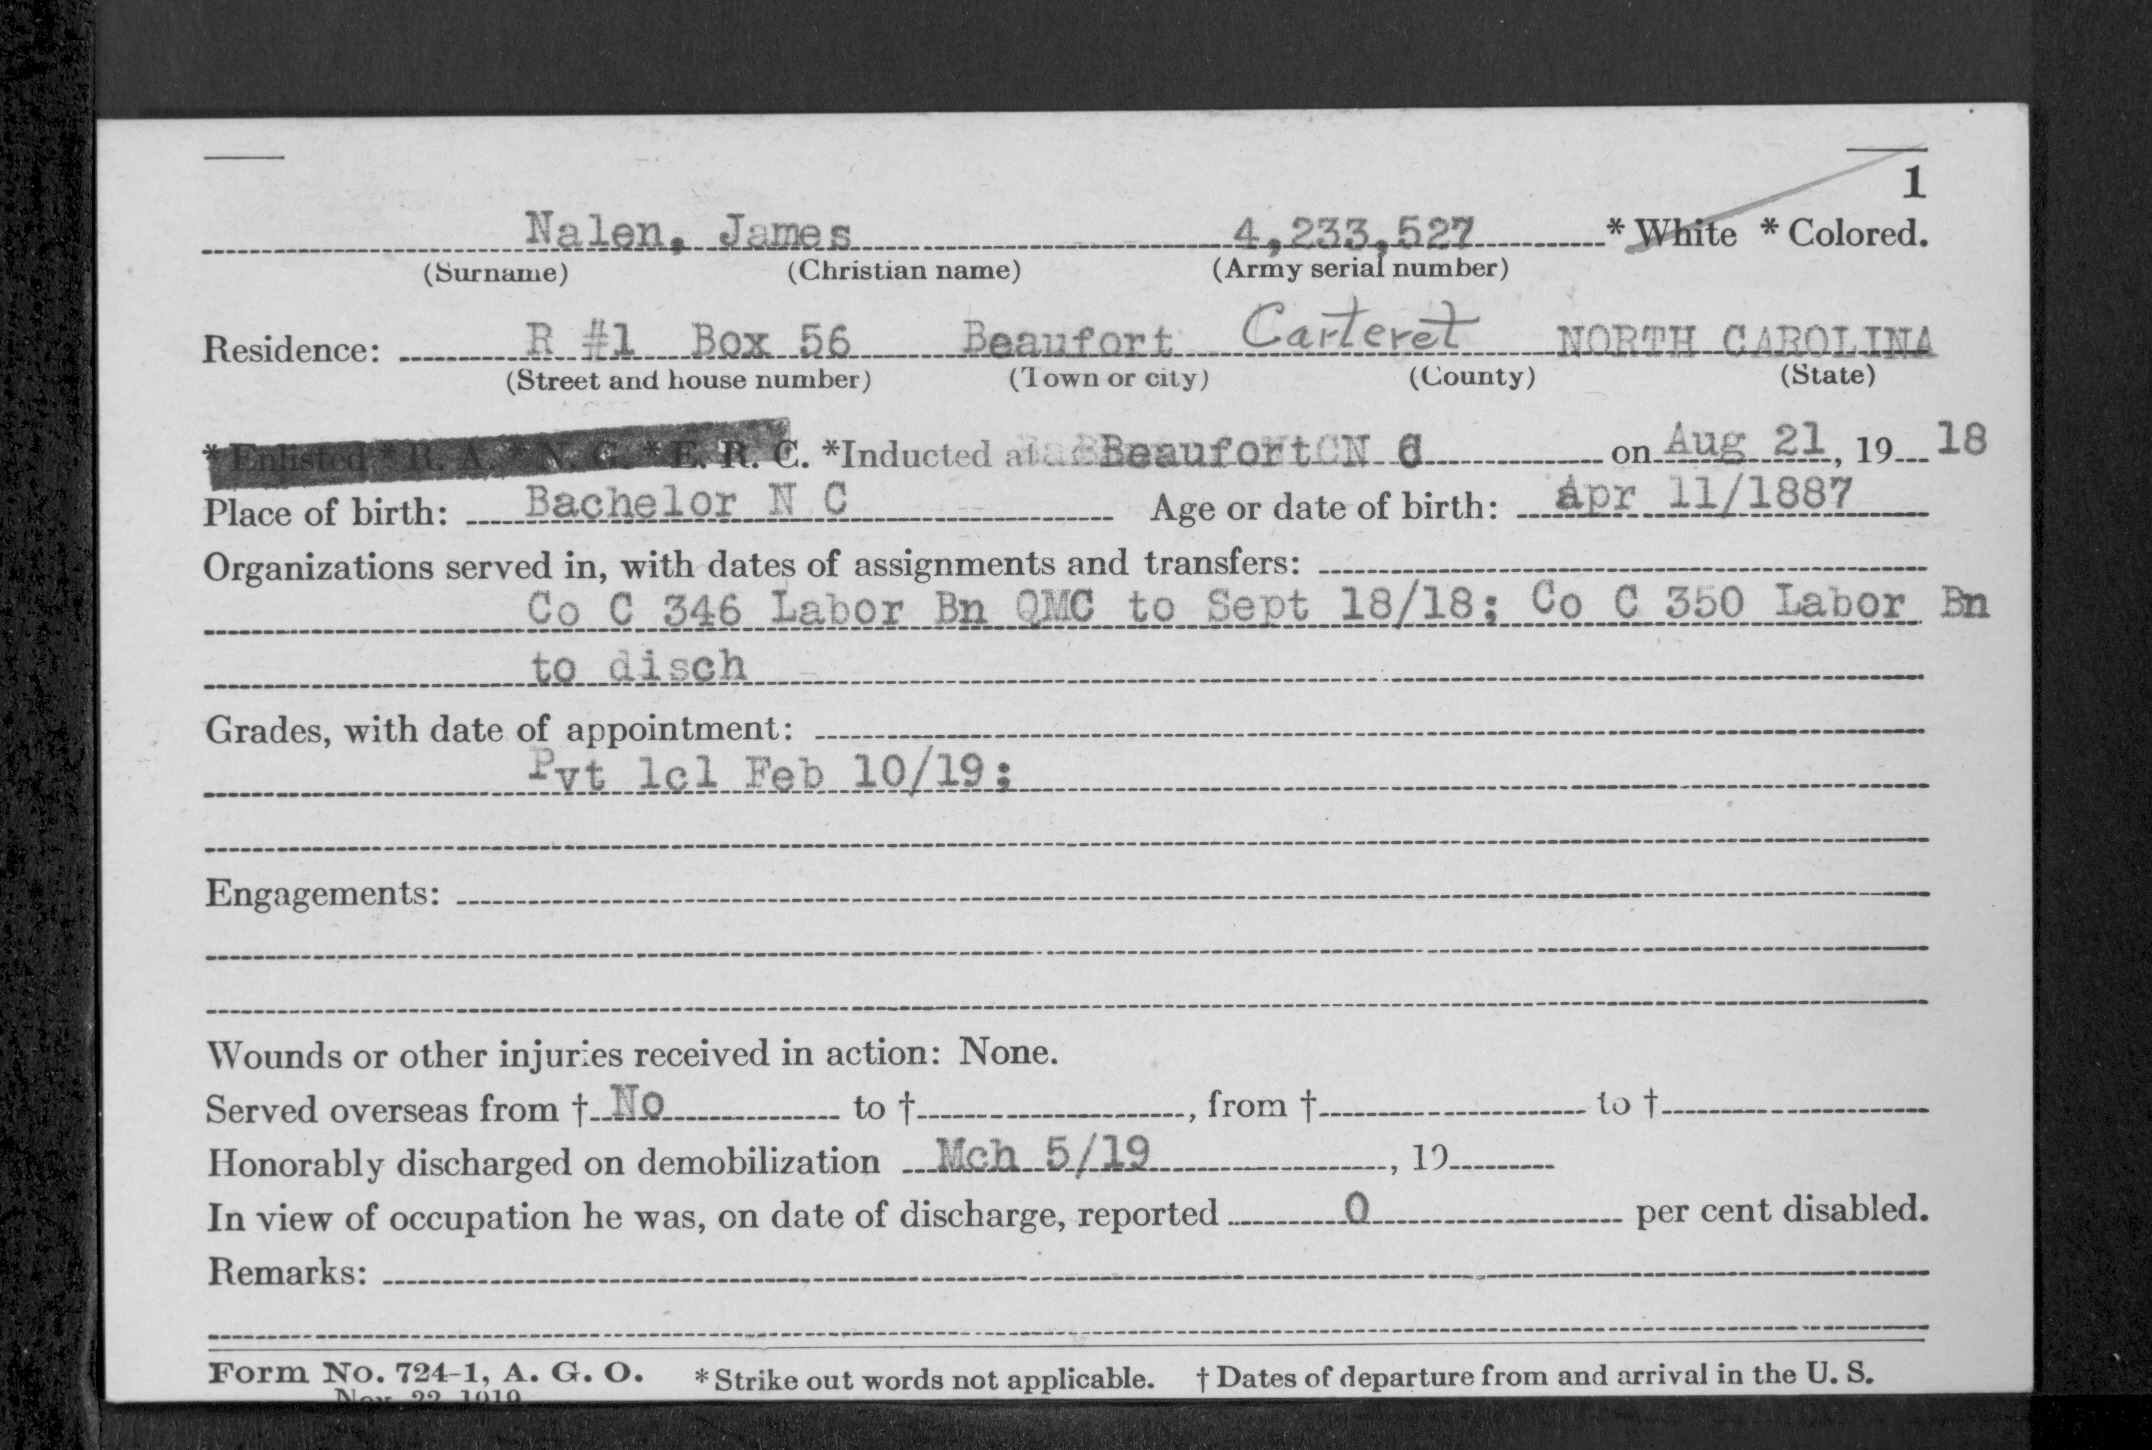 1
Nalen, James 4,233,527 * White * Colored.
(Surname) (Christian name) (Army serial number)
Residence: R #1 Box 56 Beaufort Carteret NORTH CAROLINA
(Street and house number) (Town or city) (County) (State)
* Enlisted * R. A. * N. G. * E. R. C. *Inducted at Beaufort N C on Aug 21, 19 18
Place of birth: Bachelor N C Age or date of birth: Apr 11/1887
Organizations served in, with dates of assignments and transfers:
Co C 346 Labor Bn QMC to Sept 18/18; Co C 350 Labor Bn
to disch
Grades, with date of appointment:
Pvt 1cl Feb 10/19;
Engagements:
Wounds or other injuries received in action: None.
Served overseas from † No to †, from † to †
Honorably discharged on demobilization Mch 5/19, 19
In view of occupation he was, on date of discharge, reported 0 per cent disabled.
Remarks:
Form No. 724-1, A. G. O. * Strike out words not applicable. † Dates of departure from and arrival in the U. S.
Nov. 22, 1919